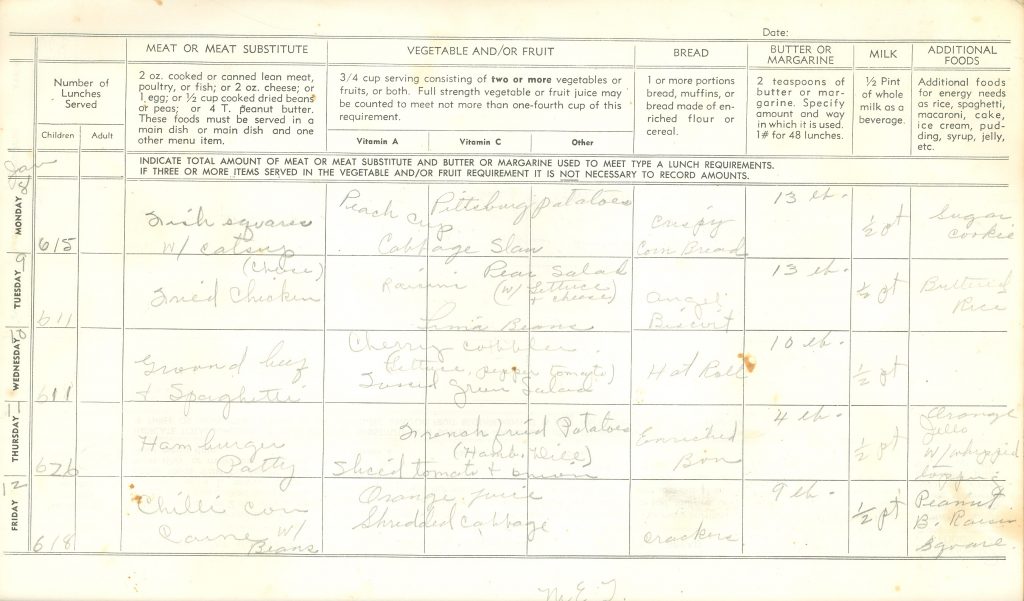 Date:
MEAT OR MEAT SUBSTITUTE
VEGETABLE AND/OR FRUIT
BREAD
BUTTER OR MARGARINE
MILK
ADDITIONAL FOODS
Number of
Lunches
Served
Children
Adult
2 oz. cooked or canned lean meat,
poultry, or fish; or 2 oz. cheese; or
1 egg; or ½ cup cooked dried beans
or peas; or 4 T. peanut butter.
These foods must be served in a
main dish or main dish and one
other menu item.
3/4 cup serving consisting of two or more vegetables or
fruits, or both. Full strength vegetable or fruit juice may
be counted to meet not more than one-fourth cup of this
requirement.
Vitamin A
Vitamin C
Other
1 or more portions
bread, muffins, or
bread made of en-
riched flour or
cereal.
2 teaspoons of
butter or mar-
garine. Specify
amount and way
in which it is used.
1# for 48 lunches.
½ Pint
of whole
milk as a
beverage.
Additional foods
for energy needs
as rice, spaghetti,
macaroni, cake,
ice cream, pud-
ding, syrup, jelly,
etc.
INDICATE TOTAL AMOUNT OF MEAT OR MEAT SUBSTITUTE AND BUTTER OR MARGARINE USED TO MEET TYPE A LUNCH REQUIREMENTS.
IF THREE OR MORE ITEMS SERVED IN THE VEGETABLE AND/OR FRUIT REQUIREMENT IT IS NOT NECESSARY TO RECORD AMOUNTS.
Jan
MONDAY 8
615
Fish squares
w/ catsup
(cheese)
Peach cup
Pittsburg potatoes
Cabbage Slaw
Crispy
Corn Bread
13 lb.
½ pt
Sugar
cookie
TUESDAY 9
611
Fried Chicken
Raisins
Pear Salad
(w/ lettuce
+ cheese)
Lima Beans
Angel
Biscuit
13 lb.
½ pt
Buttered
Rice
WEDNESDAY 10
611
Ground beef
+ Spaghetti
Cherry cobbler
(lettuce, pepper tomato)
Tossed green Salad
Hot Roll
10 lb.
½ pt
THURSDAY 11
626
Hamburger
Patty
French fried Potatoes
(Hamb. Dill)
Sliced tomato + onion
Enriched
Bun
4 lb.
½ pt
Orange
Jello
w/ whipped
topping
FRIDAY 12
618
Chilli con
Carne w/
Beans
Orange juice
Shredded cabbage
crackers
9 lb.
½ pt
Peanut
B. Raisin
Square
M.E.T.